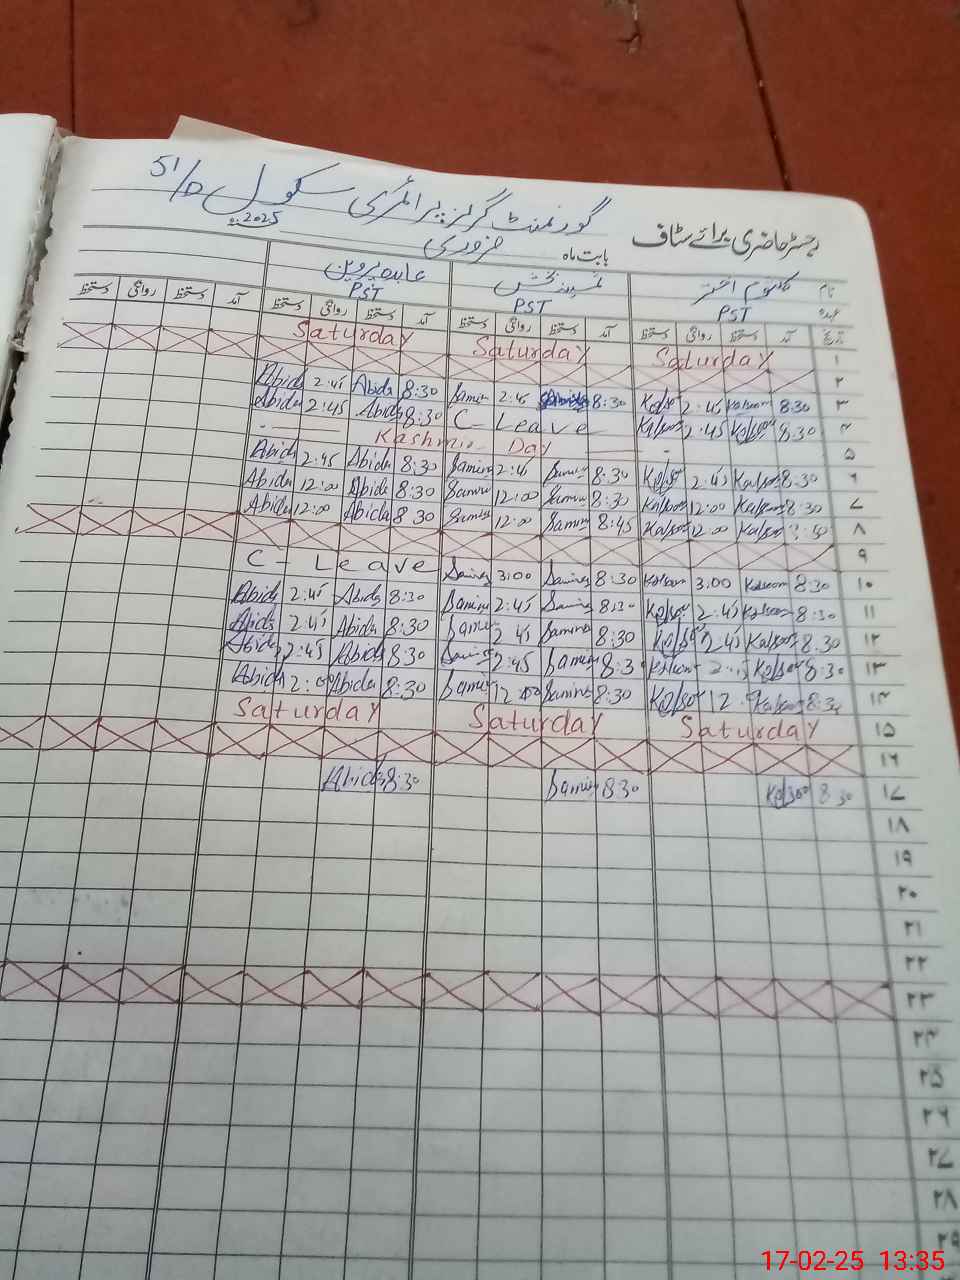 گورنمنٹ گرلز پرائمری سکول 51/D
رجسٹر حاضری برائے سٹاف
بابت ماہ فروری 2025ء
نام کلثوم اختر ثمینہ بخش عابدہ پروین
عہدہ PST PST PST
تاریخ آمد دستخط روانگی دستخط آمد دستخط روانگی دستخط آمد دستخط روانگی دستخط آمد دستخط روانگی دستخط
Saturday Saturday Saturday ۱
۲
Abida 2:45 Abida 8:30 Samina 2:45 8:30 2:45 Kalsoom 8:30 ۳
Abida 2:45 Abida 8:30 C- Leave Kalsoom 2:45 Kalsoom 8:30 ۴
Kashmir Day ۵
Abida 2:45 Abida 8:30 Samina 2:45 Samina 8:30 Kalsoom 2:45 Kalsoom 8:30 ۶
Abida 12:00 Abida 8:30 Samina 12:00 Samina 8:30 Kalsoom 12:00 Kalsoom 8:30 ۷
Abida 12:00 Abida 8:30 Samina 12:00 Samina 8:45 Kalsoom 12:00 Kalsoom ۸
۹
C- Leave Samina 3:00 Samina 8:30 Kalsoom 3:00 Kalsoom 8:30 ۱۰
Abida 2:45 Abida 8:30 Samina 2:45 Samina 8:30 Kalsoom 2:45 Kalsoom 8:30 ۱۱
Abida 2:45 Abida 8:30 Samina 2:45 Samina 8:30 Kalsoom 2:45 Kalsoom 8:30 ۱۲
Abida 2:45 Abida 8:30 Samina 2:45 Samina 8:30 Kalsoom Kalsoom 8:30 ۱۳
Abida Abida 8:30 Samina 12:00 Samina 8:30 Kalsoom Kalsoom 8:30 ۱۴
Saturday Saturday Saturday ۱۵
۱۶
Abida 8:30 Samina 8:30 Kalsoom 8:30 ۱۷
۱۸
۱۹
۲۰
۲۱
۲۲
۲۳
۲۴
۲۵
۲۶
۲۷
۲۸
۲۹
17-02-25 13:35